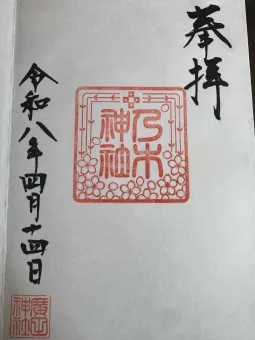 奉拝
乃木
神社
令和八年四月十四日
神社